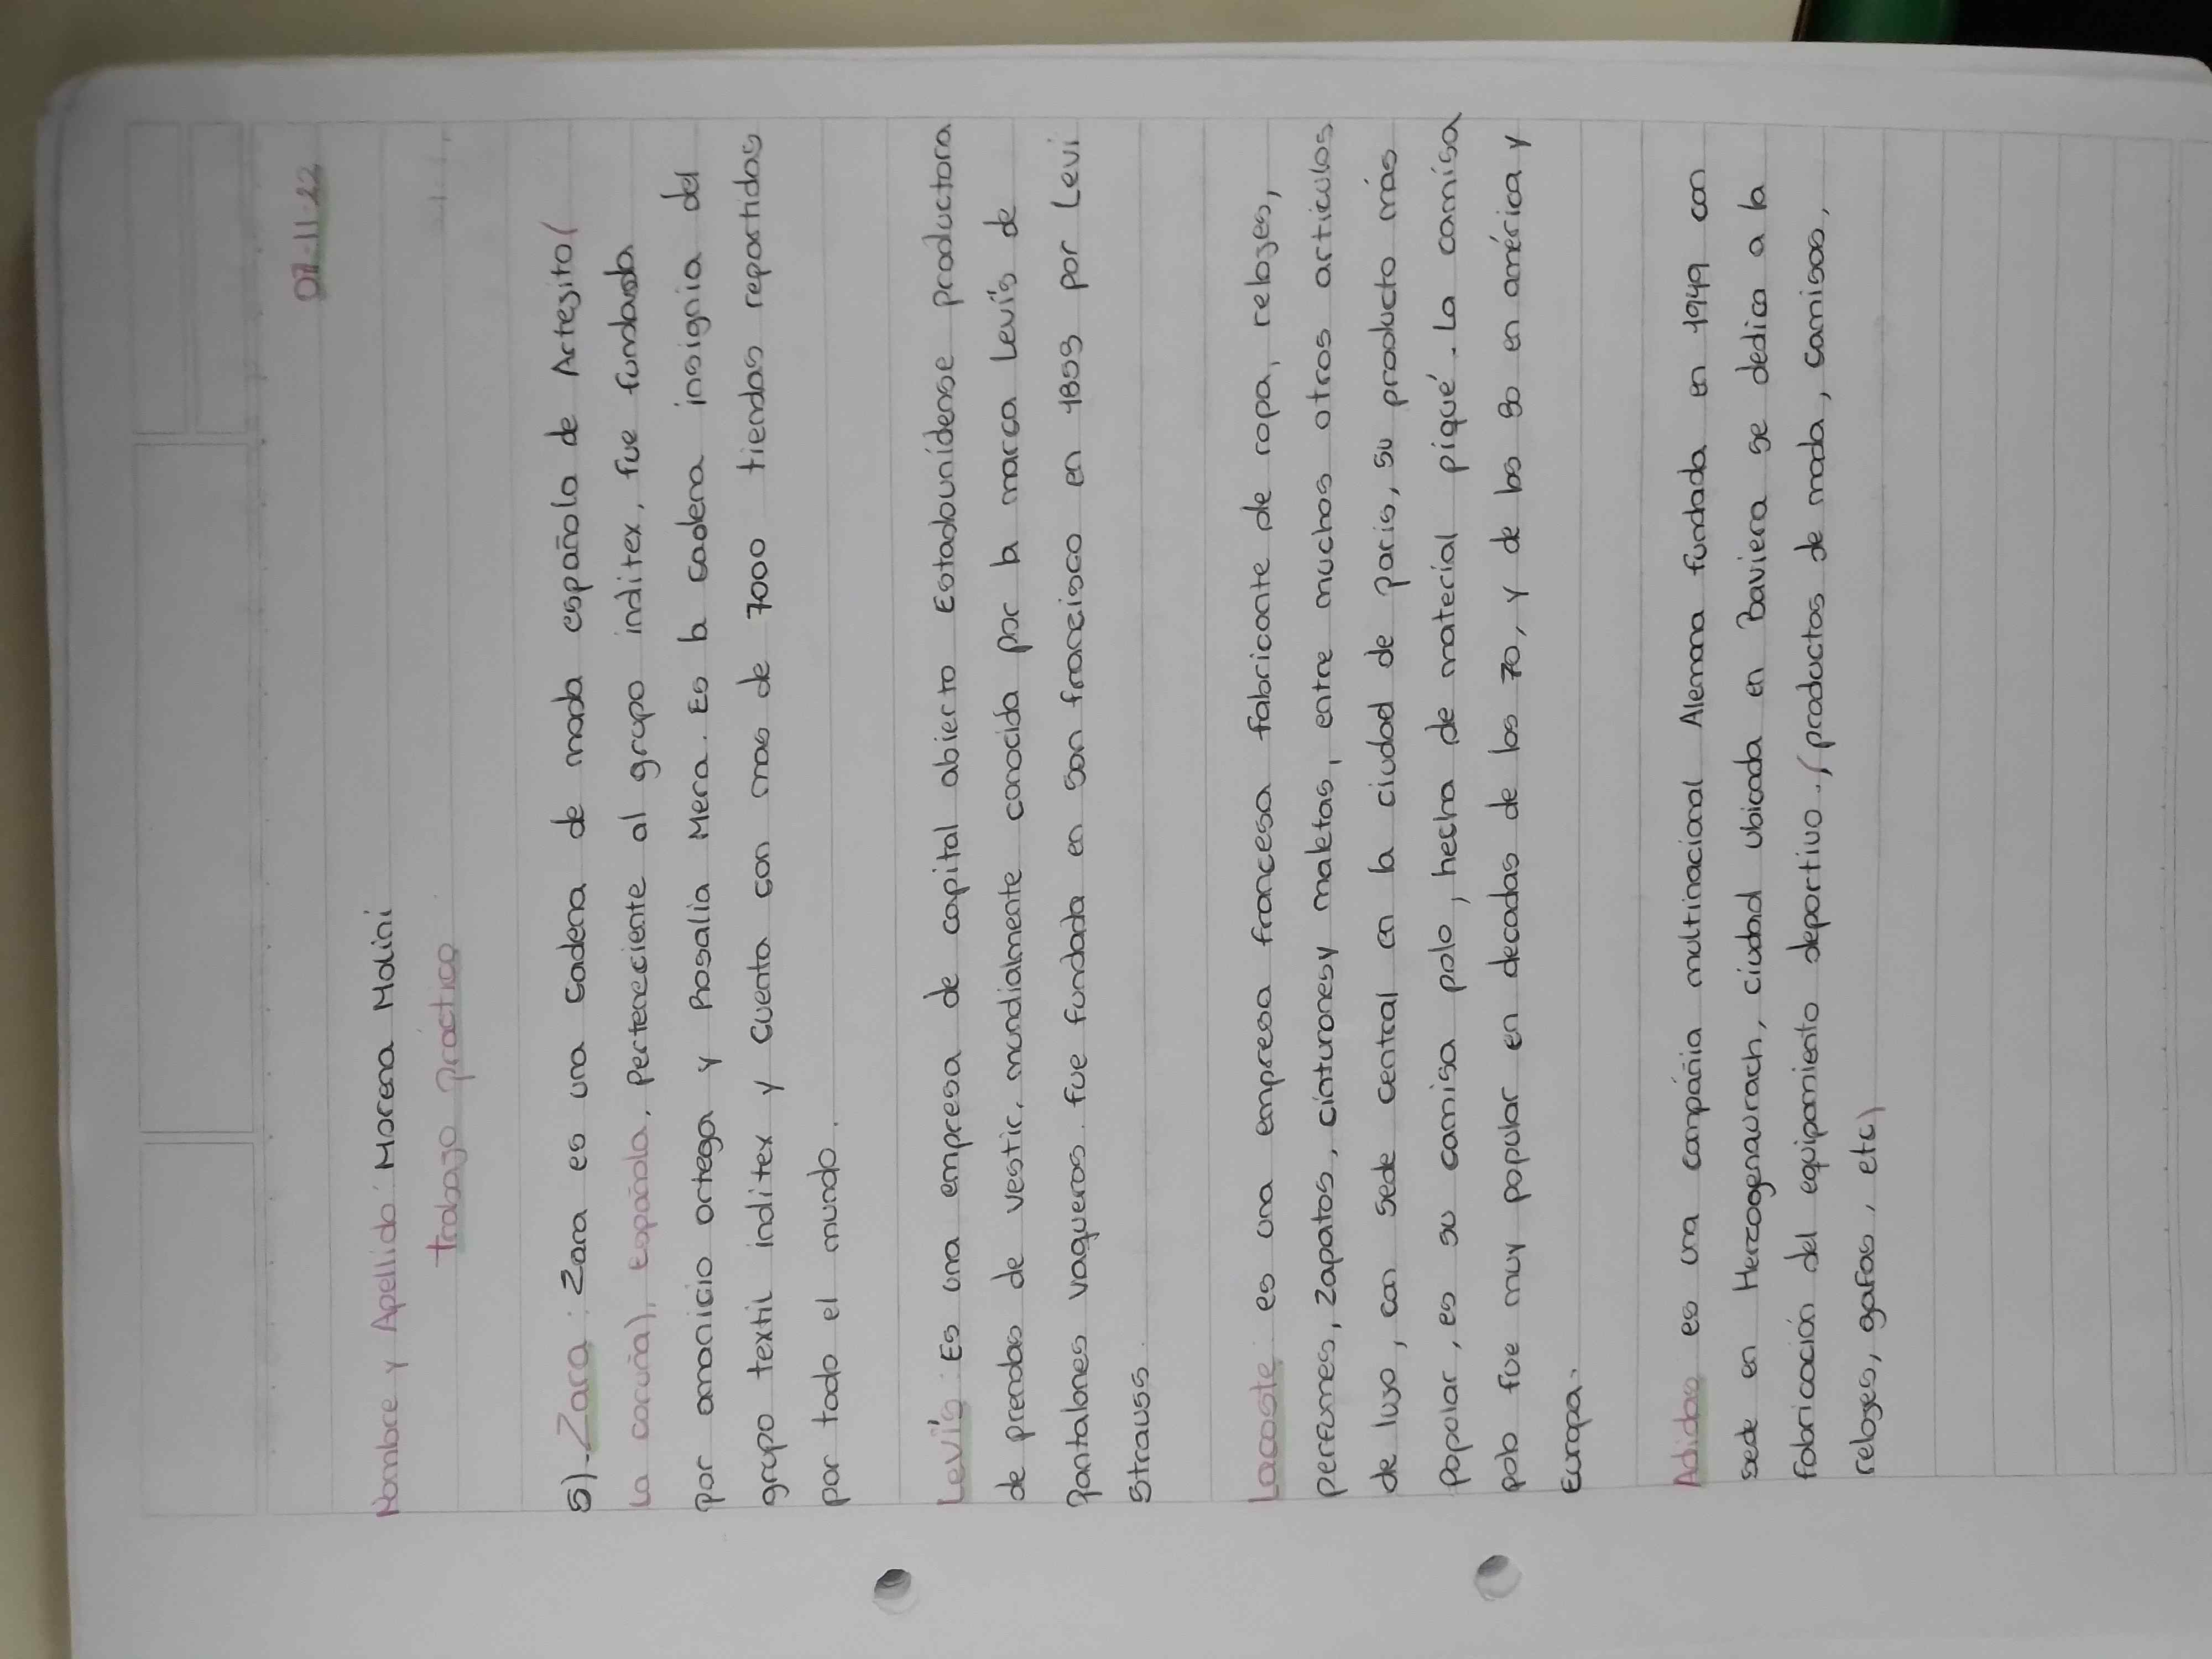 07-11-22
Nombre y Apellido: Morena Molini
trabajo práctico
5)-Zara: Zara es una cadena de moda española de Artegito(
La coruña), española, perteneciente al grupo inditex, fue fundada
por amanicio ortega y Rosalia Mera. Es la cadena insignia del
grupo textil inditex y cuenta con mas de 7000 tiendas repartidas
por todo el mundo.
Leví's: Es una empresa de capital abierto Estadounidense productora
de prendas de vestir, mundialmente conocida por la marca Leví's de
Pantalones vaqueros. fue fundada en san francisco en 1853 por Levi
Strauss.
Lacoste: es una empresa francesa fabricante de ropa, relojes,
perfumes, zapatos, cinturonesy maletas, entre muchos otros articulos
de lujo, con sede central en la ciudad de paris, su producto más
Popolar, es su camisa polo, hecha de material piqué. La camisa
polo fue muy popular en decadas de los 70, y de los 80 en américa y
Europa.
Adidas es una compañia multinacional Alemana fundada en 1949 con
sede en Herzogenaurach, ciudad ubicada en Baviera se dedica a la
fabricación del equipamiento deportivo, (productos de moda, camisas,
relojes, gafas, etc)